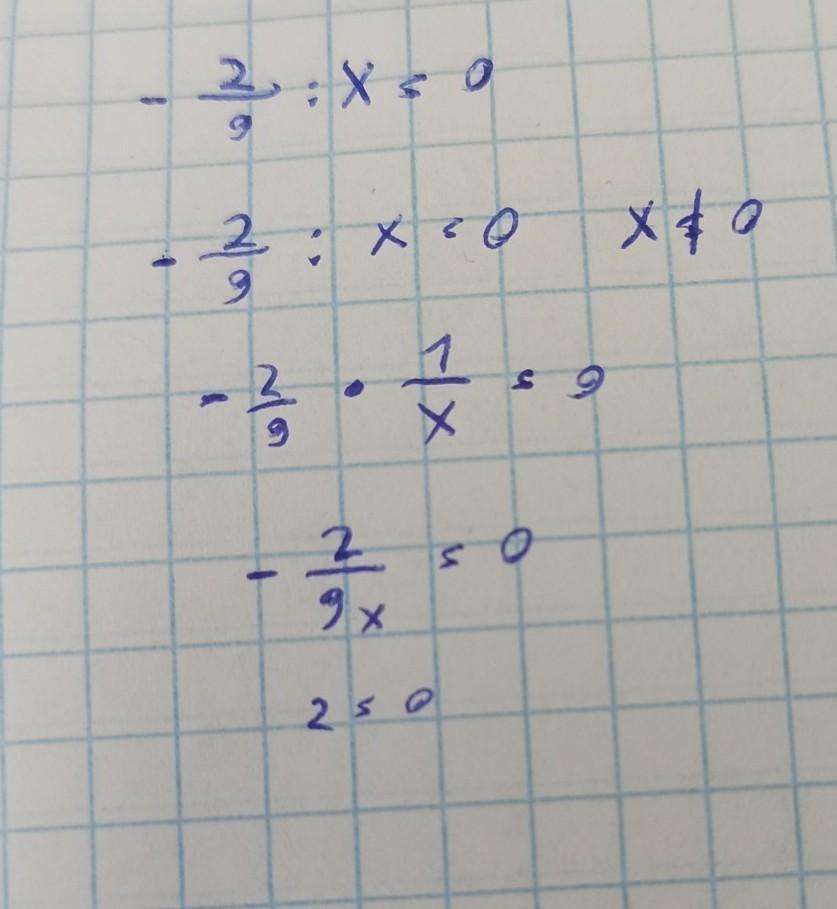 - 2/9 : x = 0
- 2/9 : x = 0 x ≠ 0
- 2/9 · 1/x = 9
- 2/9x = 0
2 = 0